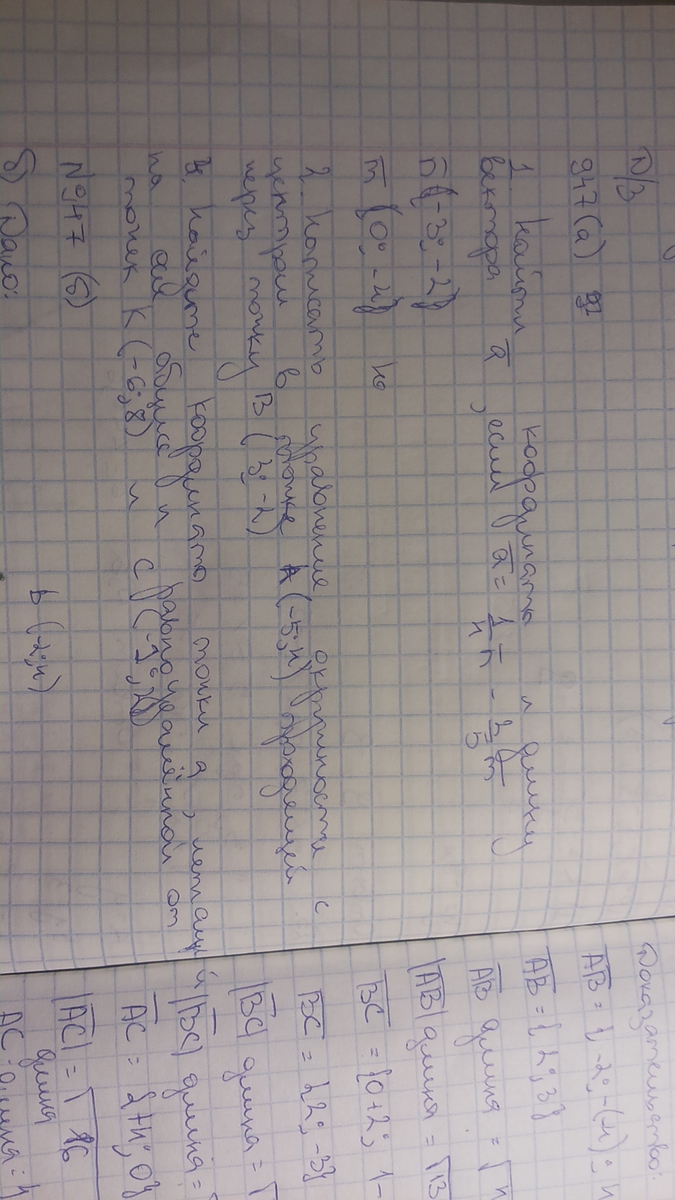 Д/з
947(а)
1. Найти координаты и длину
вектора a̅, если a̅ = 1/4 n̅ - 2/5 m̅
n̅ {-3; -2}
m̅ {0; -4}
2. Написать уравнение окружности с
центром в точке A (-5; 4) проходящей
через точку B (3; -2)
координаты точки
на оси и равноудалённой от
точек K (-6; 8) и C
N947 (б)
б) Дано:
b (-2; 4)
Доказательство:
A̅B̅ = {-2; -(4);
A̅B̅ = {2; 3}
A̅B̅ длина = √
|A̅B̅| длина = √
B̅C̅ = {0+2; 1-
B̅C̅ = {2; -3}
|B̅C̅| длина = √
|B̅C̅| длина =
A̅C̅ = {+4; 0}
|A̅C̅| = √16
длина